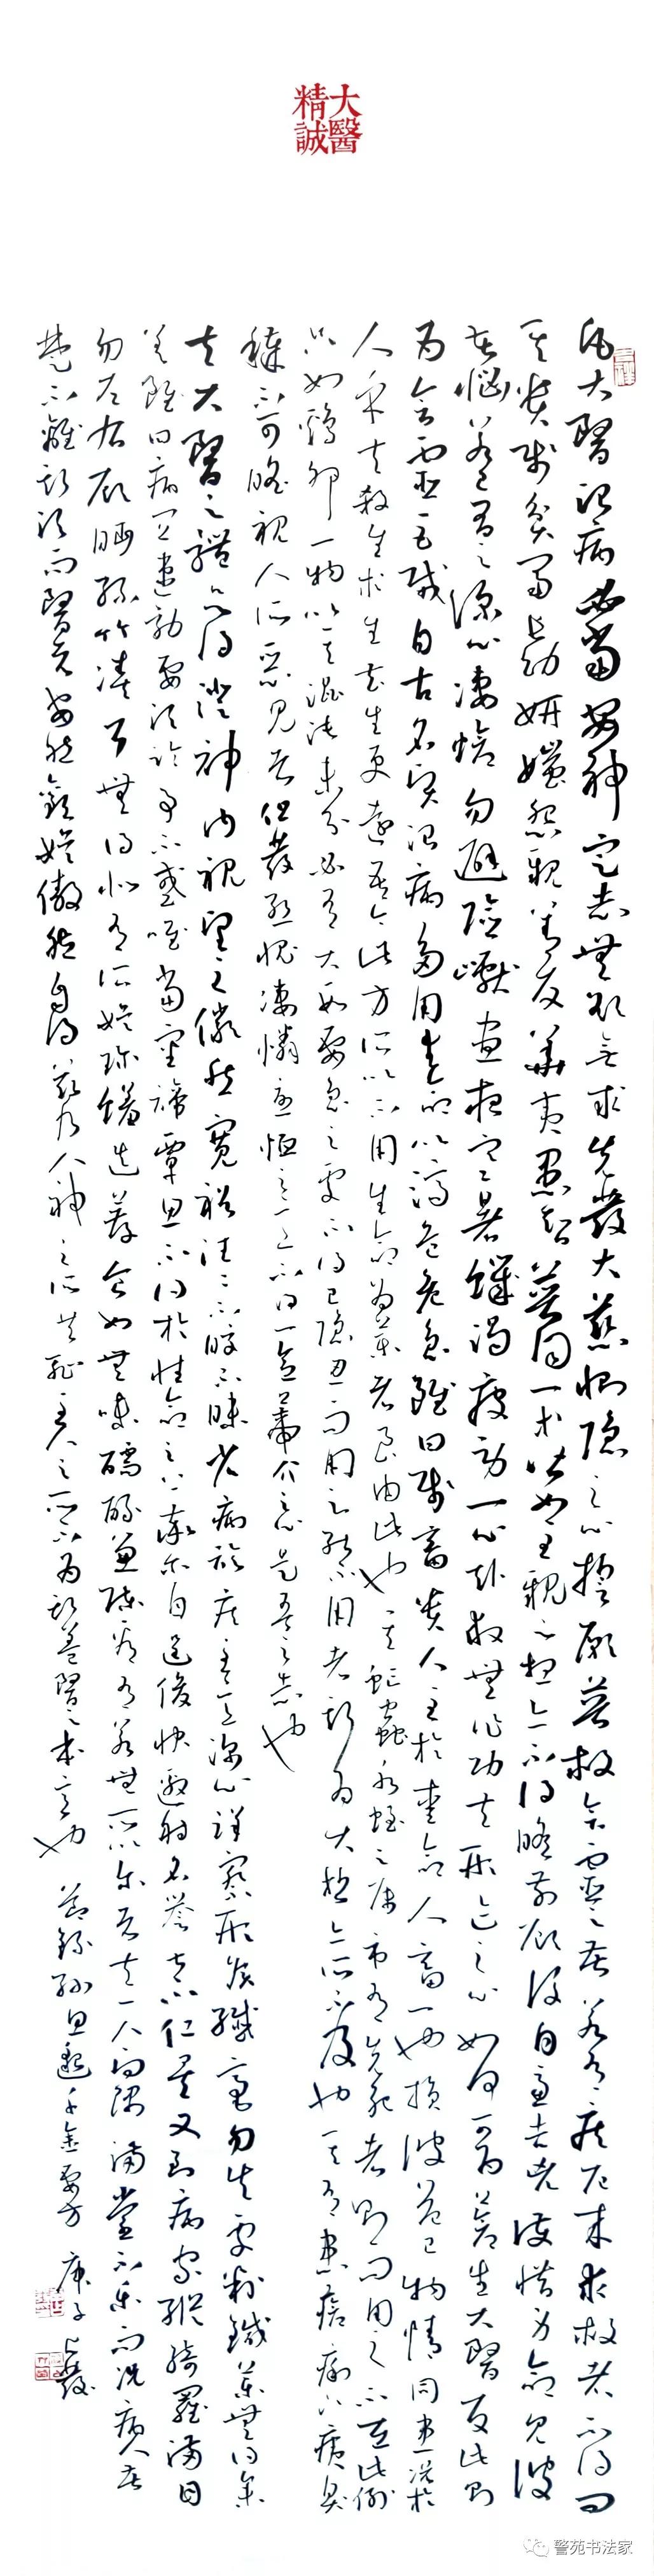 大醫
精誠
凡大醫治病必當安神定志無欲無求先發大慈惻隱之心誓願普救含靈之苦若有疾厄來求救者不得問
其貴賤貧富長幼妍媸怨親善友華夷愚智普同一等皆如至親之想亦不得瞻前顧後自慮吉凶護惜身命見彼
苦惱若己有之深心悽愴勿避險巇晝夜寒暑飢渴疲勞一心赴救無作功夫形迹之心如此可為蒼生大醫反此則
為含靈巨賊自古名賢治病多用生命以濟危急雖曰賤畜貴人至於愛命人畜一也損彼益己物情同患況於
人乎夫殺生求生去生更遠吾今此方所以不用生命為藥者良由此也其虻蟲水蛭之屬市有先死者則市而用之不在此例
只如雞卵一物以其混沌未分必有大段要急之處不得已隱忍而用之能不用者斯為大哲亦所不及也其有患瘡痍下痢臭
穢不可瞻視人所惡見者但發慚愧悽憐憂恤之意不得起一念蒂芥之心是吾之志也
夫大醫之體欲得澄神內視望之儼然寬裕汪汪不皎不昧省病診疾至意深心詳察形候纖毫勿失處判鍼藥無得參
差雖曰病宜速救要須臨事不惑唯當審諦覃思不得於性命之上率爾自逞俊快邀射名譽甚不仁矣又到病家縱綺羅滿目
勿左右顧眄絲竹湊耳無得似有所娛珍饈迭薦食如無味醽醁兼陳看有若無所以爾者夫一人向隅滿堂不樂而況病人苦
楚不離斯須而醫者安然歡娛傲然自得茲乃人神之所共恥至人之所不為斯蓋醫之本意也 節錄孫思邈千金要方 庚子
警苑书法家